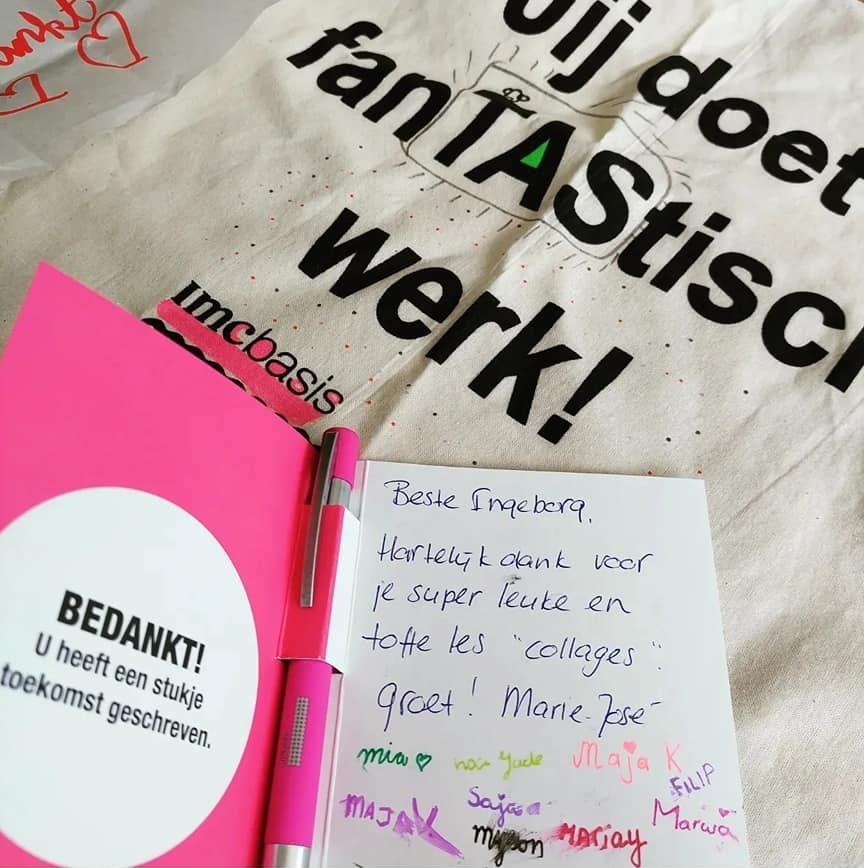 Jij doet
fanTAStisch
werk!
imcbasis
BEDANKT!
U heeft een stukje
toekomst geschreven.
Beste Ingeborg,
Hartelijk dank voor
je super leuke en
toffe les "collages".
groet! Marie-José
mia Maja K
FILIP
MAJA
Marwa